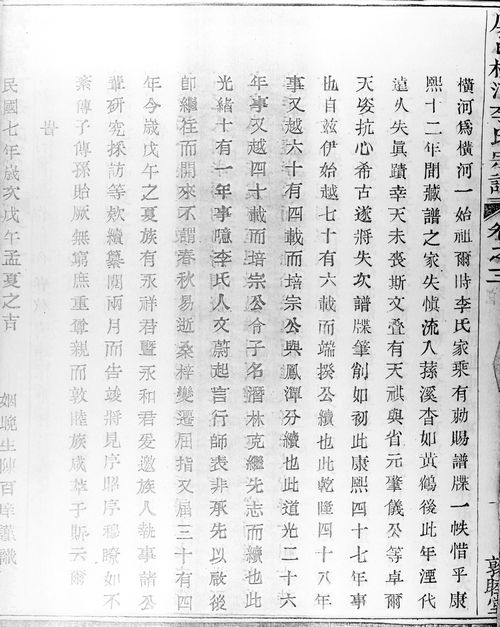 李氏宗譜
卷之二
橫河爲橫河一始祖爾時李氏家乘有勅賜譜牒一帙惜乎康
熙十二年間藏譜之家失愼流入蓀溪杳如黃鶴後此年湮代
遠久失眞蹟幸天未喪斯文叠有天祺與省元肇儀公等卓爾
天姿抗心希古遂將失次譜牒筆削如初此康熙四十七年事
也自茲伊始越七十有六載而端揆公續也此乾隆四十八年
事又越六十有四載而培宗公與鳳潭分續也此道光二十六
年事又越四十載而培宗公令子名潛林克繼先志而續也此
光緒十有一年事隱李氏人文蔚起言行師表非承先以啟後
卽繼往而開來不謂春秋易逝桑梓變遷屈指又屆三十有四
年今歲戊午之夏族有永祥君暨永和君爰邀族人執事諸公
輩研究採訪等欸續纂閱兩月而告竣將見序昭序穆瞭如不
紊傳子傳孫貽厥無窮庶重尊親而敦睦族咸萃于斯云爾
旹
民國七年歲次戊午孟夏之吉
姻晚生陳百 謹識
敦睦堂